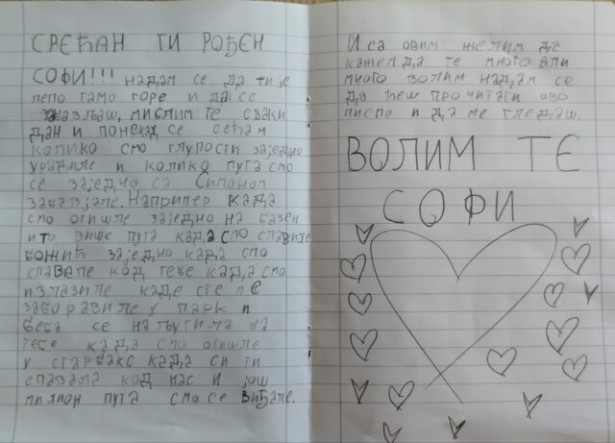 СРЕЋАН ТИ РОЂЕН
СОФИ!!! надам се да ти је
лепо тамо горе и да се
забављаш, мислим те сваки
дан и понекад се сећам
колико смо глупости заједно
урадиле и колико пута смо
се заједно са
Например када
смо отишле заједно на базен
и то више пута када смо славиле
божић заједно када смо
спавале код тебе када смо
излазиле каде сте ле
заборавиле у парк и
беба се наљутила на
тебе када смо отишле
у старбакс када си ти
спавала код нас и још
милион пута смо се виђале.
И са овим желим да
кажем да те много али
много волим надам се
да ћеш прочитати ово
писпо и да ме гледаш.
ВОЛИМ ТЕ
СОФИ